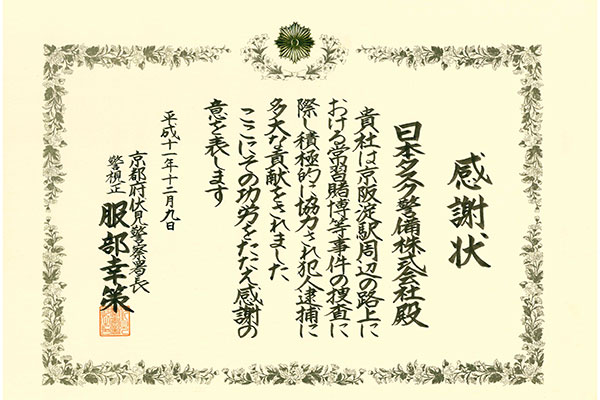 感謝状
日本タスク警備株式会社殿
貴社は京阪淀駅周辺の路上に
おける常習賭博等事件の捜査に
際し積極的に協力され犯人逮捕に
多大な貢献をされました
ここにその功労をたたえ感謝の
意を表します
平成十一年十二月九日
京都府伏見警察署長
警視正 服部幸策